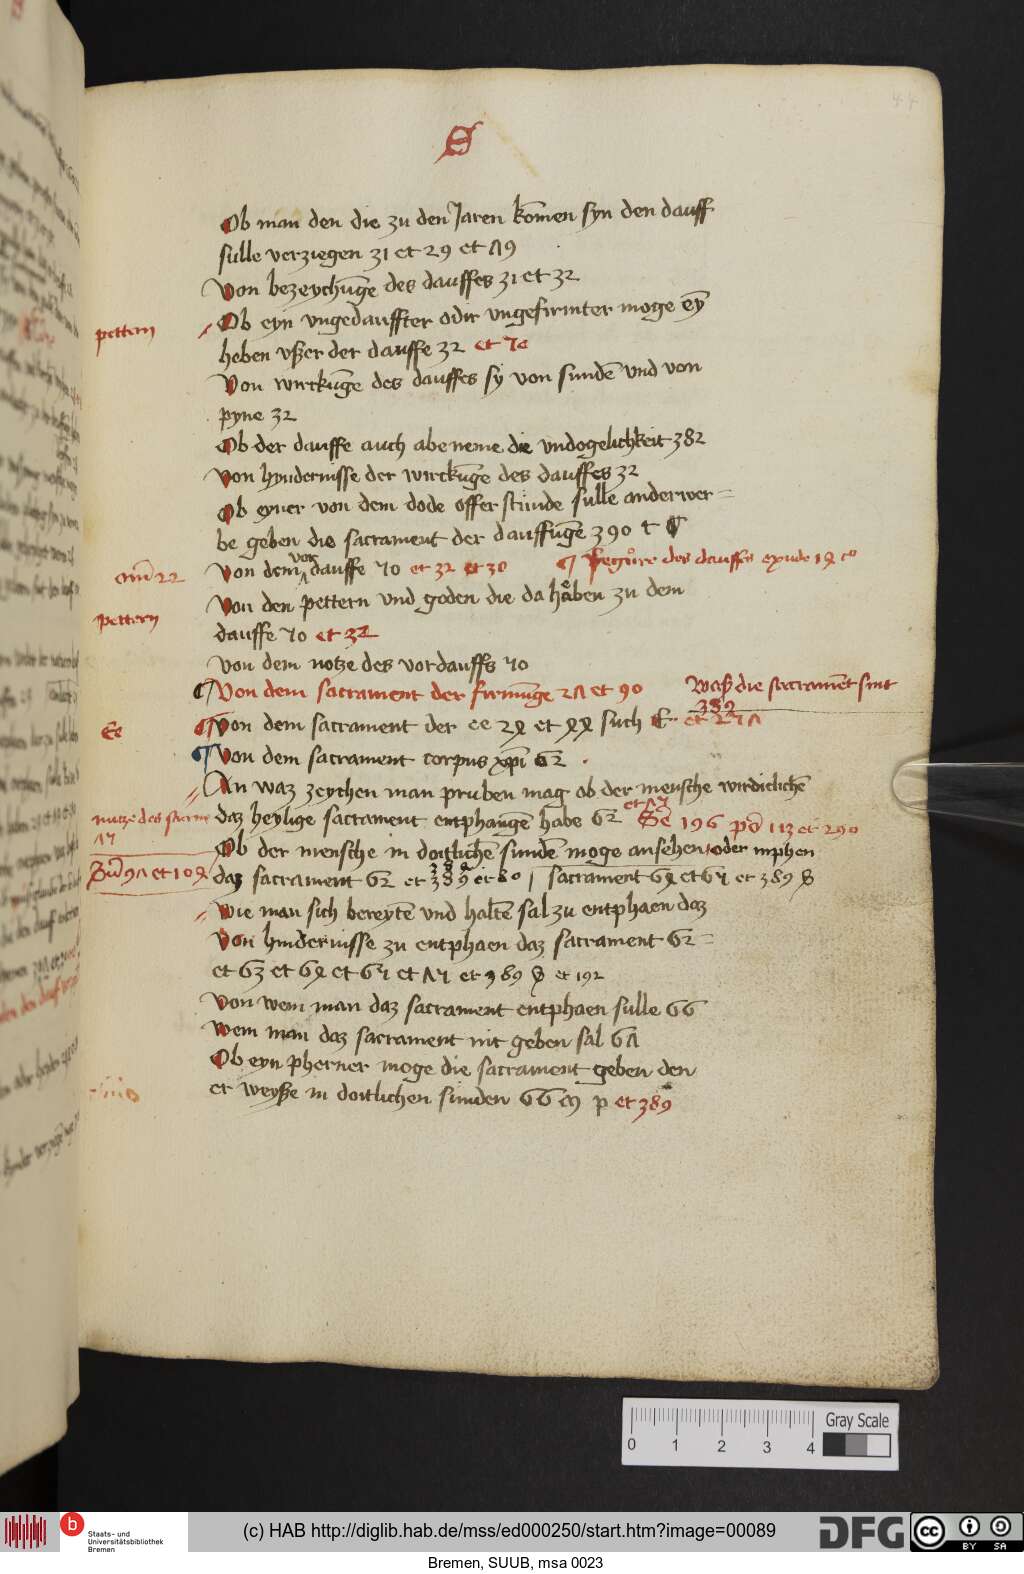 S
Ob man den die zu den Jaren kom̄en syn den dauff
sulle verziegen 31 et 29 et Λ9
Von bezeychūge des dauffes 31 et 32
pettern
Ob eyn vngedauffter odir vngefirmter moge ey̅
heben vßer der dauffe 32 et 70
Von wirckūge des dauffes sy von sundē vnd von
pyne 32
Ob der dauffe auch abeneme die vndogelichkeit 382
Von hyndernisse der wirckūge des dauffes 32
Ob eyner von dem dode offerstunde sulle anderwer=
be geben die sacrament der dauffūge 390
Von dem vor dauffe 70 et 32 et 30
des dauffs
22
Von den pettern vnd goden die da haͤben zu dem
pettern
dauffe 70 et 32
Von dem notze des vordauffs 70
Von dem sacrament der firmūge 2Λ et 90
Waß die sacramēt sint
389
Ee
Von dem sacrament der ee 2ꝝ et ꝝꝝ such E et 27Λ
Von dem sacrament corpus xp̄i 62
An waz zeychen man pruben mag ob der mensche wirdiclichē
nutze des sacrm
Λ7
daz heylige sacrament entphangē habe 62 et Λ7 196 113 et 290
Ob der mensche in doitlichē sundē moge ansehen oder inphen
daz sacrament 62 et 389 et 80 sacrament 6ꝝ et 67 et 389
9Λ et 10ꝝ
Wie man sich bereytē vnd haltē sal zu entphaen daz
Von hindernisse zu entphaen daz sacrament 62=
et 63 et 6ꝝ et 67 et Λ7 et 389 et 192
Von wem man daz sacrament entphaen sulle 66
Wem man daz sacrament nit geben sal 6Λ
Ob eyn pherner moge die sacrament geben den
er weyße in doitlichen sunden 66 p et 389
0 1 2 3 4
Gray Scale
Staats- und
Universitätsbibliothek
Bremen
(c) HAB http://diglib.hab.de/mss/ed000250/start.htm?image=00089
DFG
cc BY SA
Bremen, SUUB, msa 0023